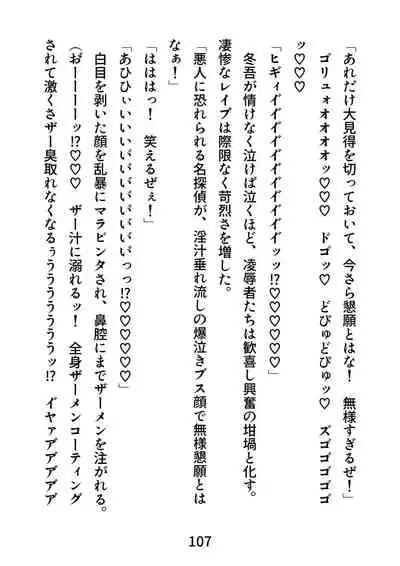 「あれだけ大見得を切っておいて、今さら懇願とはな！　無様すぎるぜ！」
ゴリュォオオオオッ♡♡♡　ドゴッ♡　どびゅどびゅッ♡　ズゴゴゴゴゴ
ッ♡♡♡
「ヒギィイイイイイイイイイイイイイッッ!?♡♡♡♡♡♡」
冬吾が情けなく泣けば泣くほど、凌辱者たちは歓喜し興奮の坩堝と化す。
凄惨なレイプは際限なく苛烈さを増した。
「悪人に恐れられる名探偵が、淫汁垂れ流しの爆泣きブス顔で無様懇願とは
なぁ！」
「はははっ！　笑えるぜぇ！」
「あひひぃいいいいいっっ!?♡♡♡♡♡」
白目を剥いた顔を乱暴にマラビンタされ、鼻腔にまでザーメンを注がれる。
（お゛ーーーーッ!?♡♡♡　ザー汁に溺れるッ！　全身ザーメンコーティング
されて激くさザー臭取れなくなるぅうううううううッ!?　イヤァアアアアアア
107